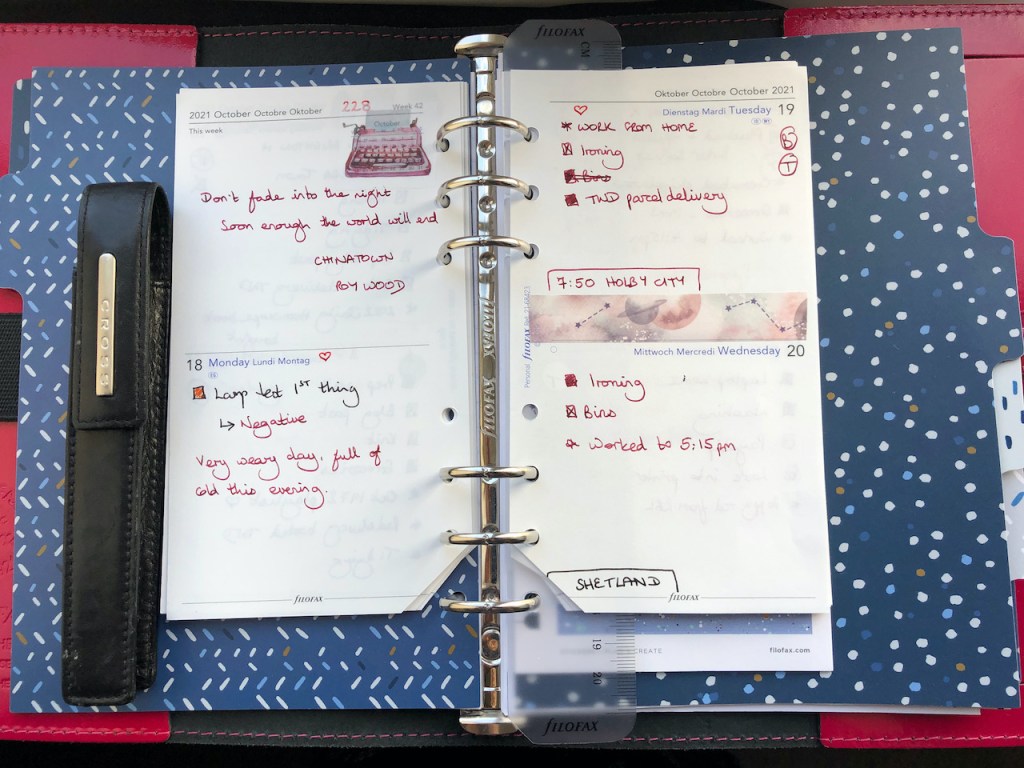 2021 October Octobre Oktober
228
Week 42
This week
October
Don't fade into the night
Soon enough the world will end
CHINATOWN
ROY WOOD
18 Monday Lundi Montag
Lamp test 1ST thing
↳ Negative
Very weary day, full of
cold this evening.
FILOFAX
CROSS
FILOFAX
CM
FILOFAX
Oktober Octobre October 2021
Dienstag Mardi Tuesday 19
* WORK FROM HOME
B
Ironing
T
Bins
TWD parcel delivery
7:50 HOLBY CITY
Mittwoch Mercredi Wednesday 20
Ironing
Bins
Worked to 5:15pm
SHETLAND
FILOFAX
Personal FILOFAX
19
20
CREATE
filofax.com
FILOFAX